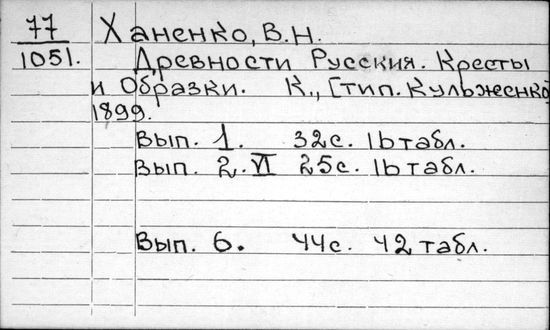 77 Ханенко, В.Н.
1051. Древности Русския. Кресты
и Образки. К., [тип. Кульженко
1899.
Вып. 1. 32с. 16 табл.
Вып. 2. VI 25с. 16 табл.
Вып. 6. 44с. 42 табл.